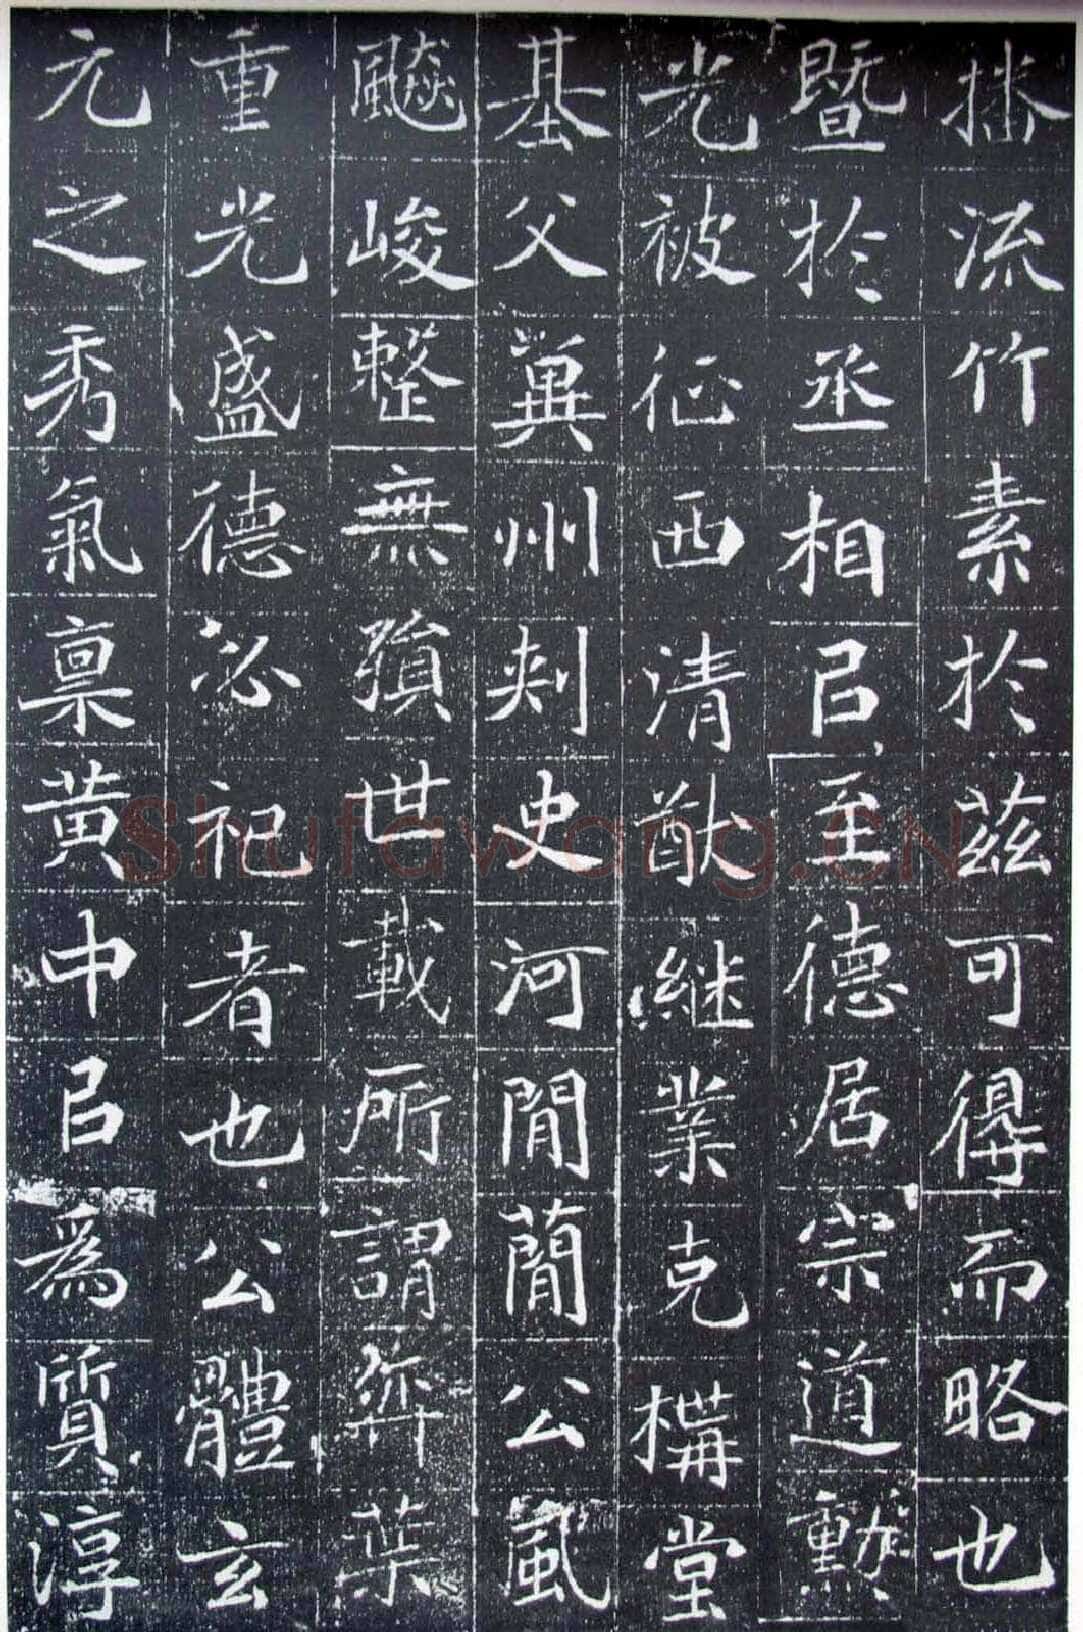 播流竹素於茲可得而略也
暨於丞相以至德居宗道勳
光被征西清猷継業克構堂
基父冀州刺史河間簡公風
飈峻整無殞世載所謂弈葉
重光盛德必祀者也公體玄
元之秀氣稟黃中以爲質淳
Shufawang.CN